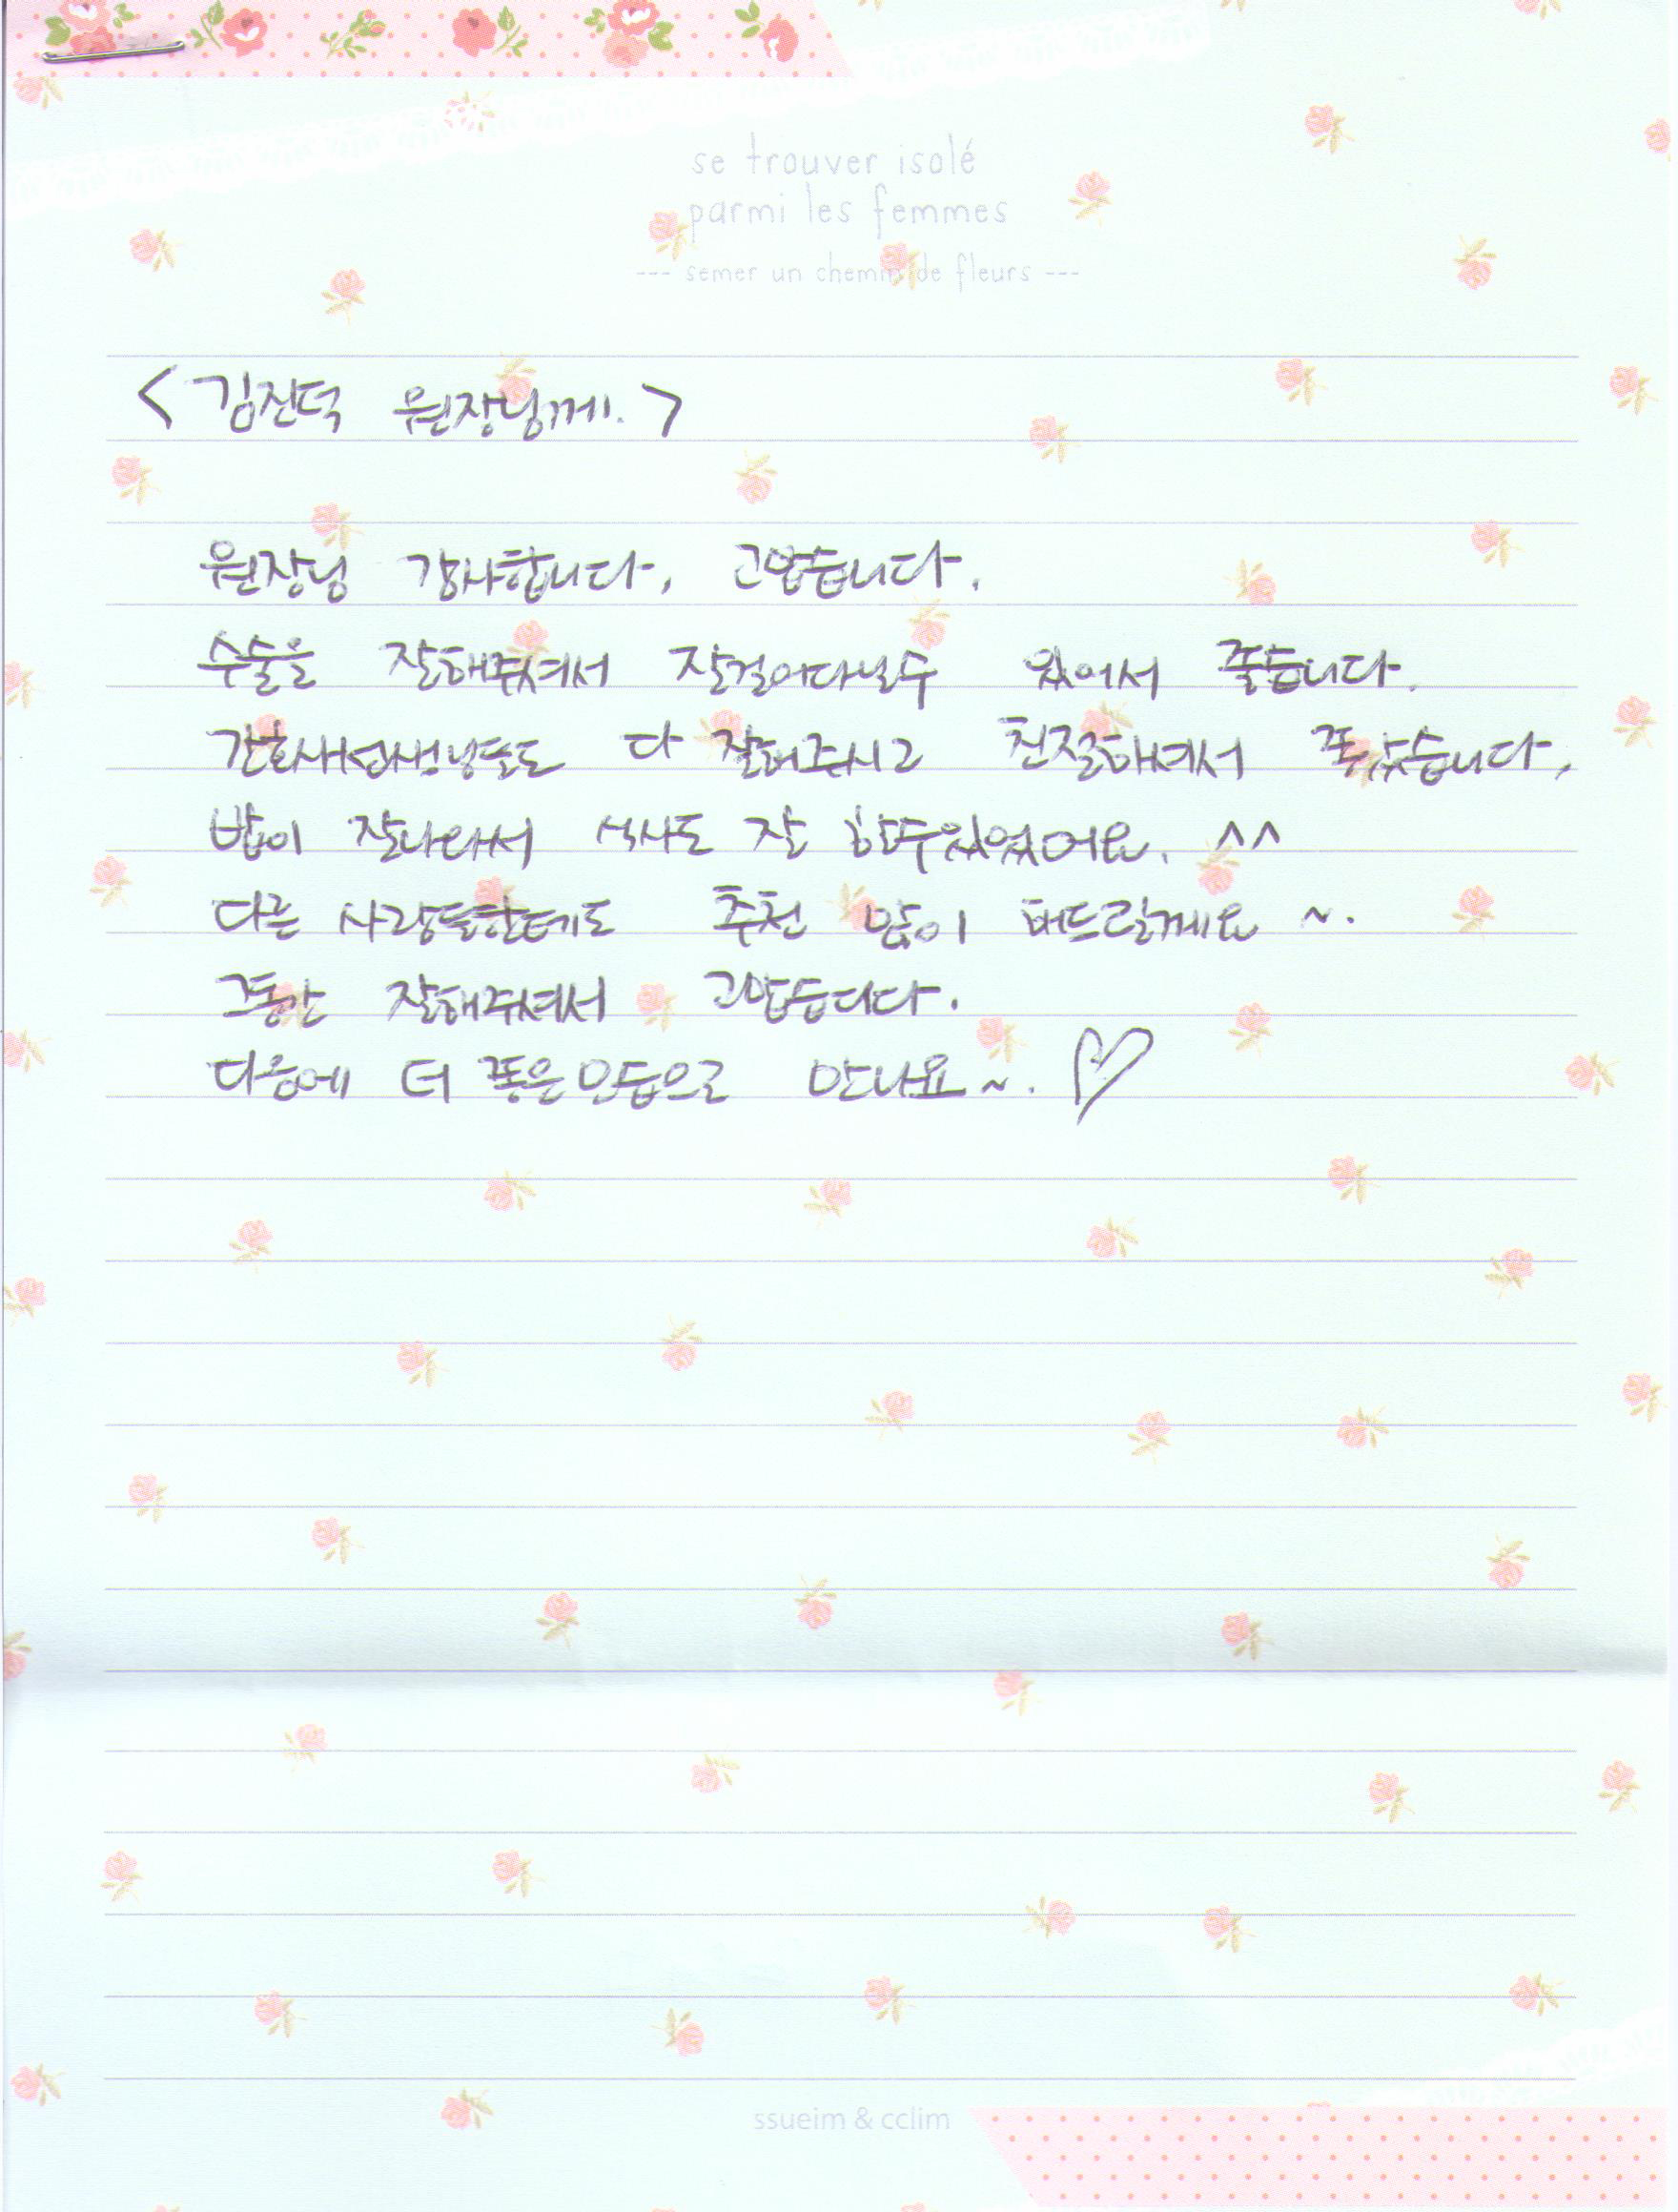 se trouver isolé
parmi les femmes
--- semer un chemin de fleurs ---
< 김진덕 원장님께. >
원장님 감사합니다, 고맙습니다.
수술을 잘해주셔서 잘걸어다닐수 있어서 좋습니다.
간호사선생님들도 다 잘해주시고 친절하셔서 좋았습니다,
밥이 잘나와서 식사도 잘 할수있었어요. ^^
다른 사람들한테도 추천 많이 해드릴게요 ~.
그동안 잘해주셔서 고맙습니다.
다음에 더 좋은모습으로 만나요~. ♡
ssueim & cclim